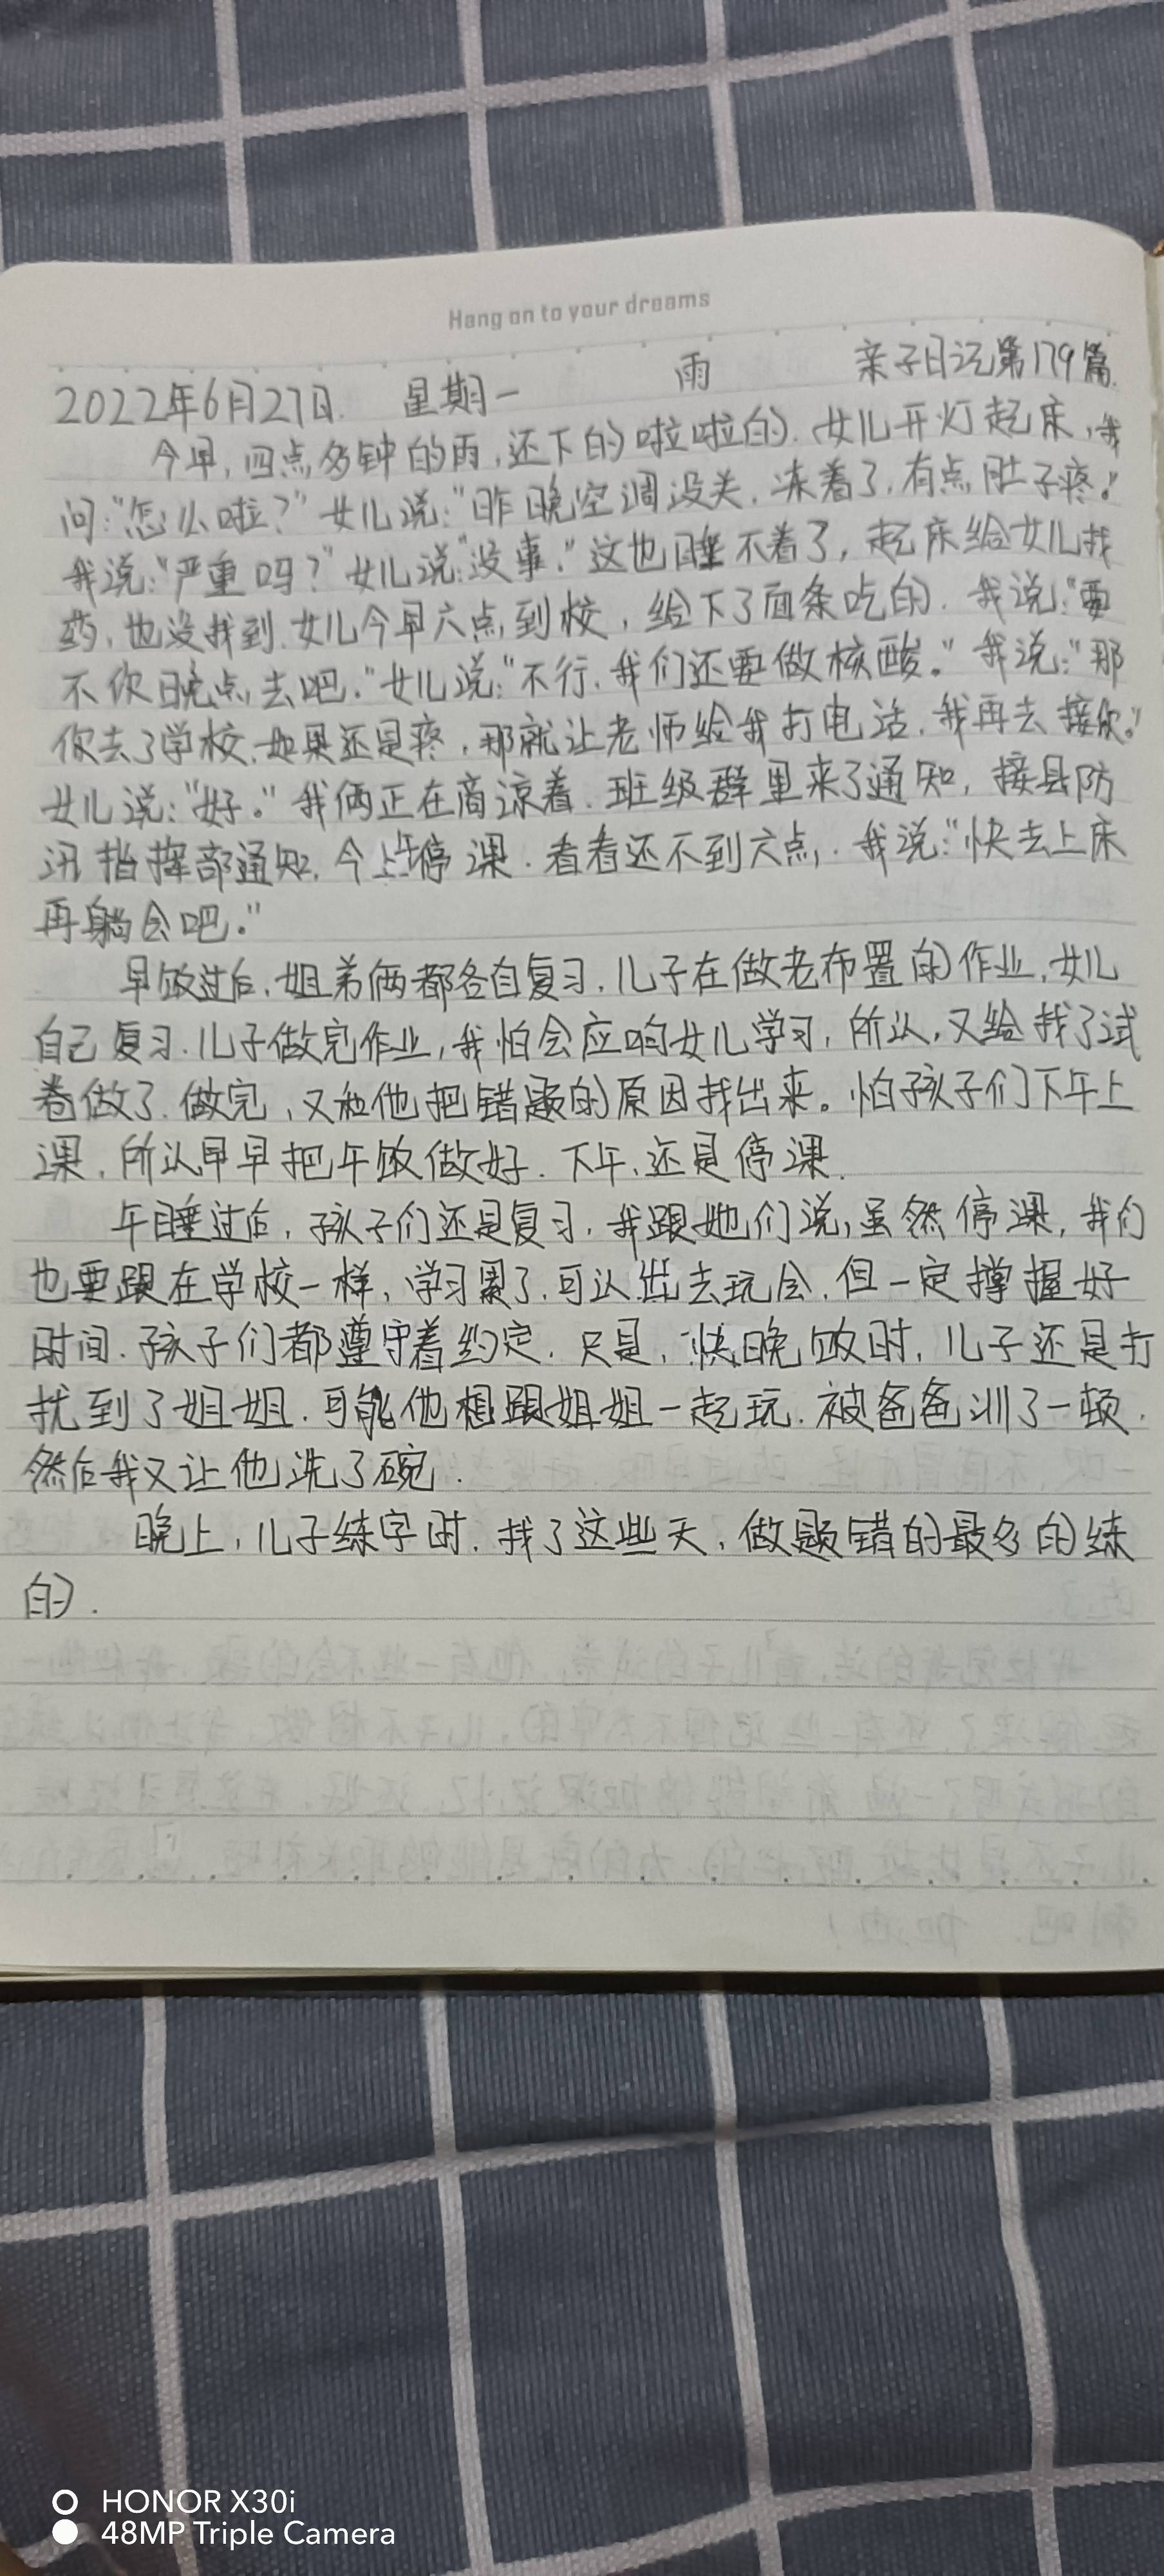 Hang on to your dreams
2022年6月27日. 星期一 雨 亲子日记第179篇.
今早,四点多钟的雨,还下的啦啦的.女儿开灯起床,我
问:"怎么啦?"女儿说:"昨晚空调没关,冻着了,有点肚子疼。"
我说:"严重吗?"女儿说:"没事."这也睡不着了,起床给女儿找
药,也没找到.女儿今早六点到校,给下了面条吃的.我说:"要
不你晚点去吧."女儿说:"不行,我们还要做核酸。"我说:"那
你去了学校,如果还是疼,那就让老师给我打电话,我再去接你。"
女儿说:"好。"我俩正在商凉着.班级群里来了通知,接县防
汛指挥部通知,今上午停课.看看还不到六点,.我说:"快去上床
再躺会吧."
早饭过后,姐弟俩都各自复习.儿子在做老布置的作业,女儿
自己复习.儿子做完作业,我怕会应响女儿学习,所以,又给找了试
卷做了.做完,又和他把错题的原因找出来。怕孩子们下午上
课,所以早早把午饭做好.下午,还是停课.
午睡过后,孩子们还是复习.我跟她们说,虽然停课,我们
也要跟在学校一样,学习累了,可以出去玩会,但一定撑握好
时间.孩子们都遵守着约定.只是,快晚饭时,儿子还是打
扰到了姐姐.可能他想跟姐姐一起玩.被爸爸训了一顿.
然后我又让他洗了碗.
晚上,儿子练字时.找了这些天,做题错的最多的练
的.
HONOR X30i
48MP Triple Camera